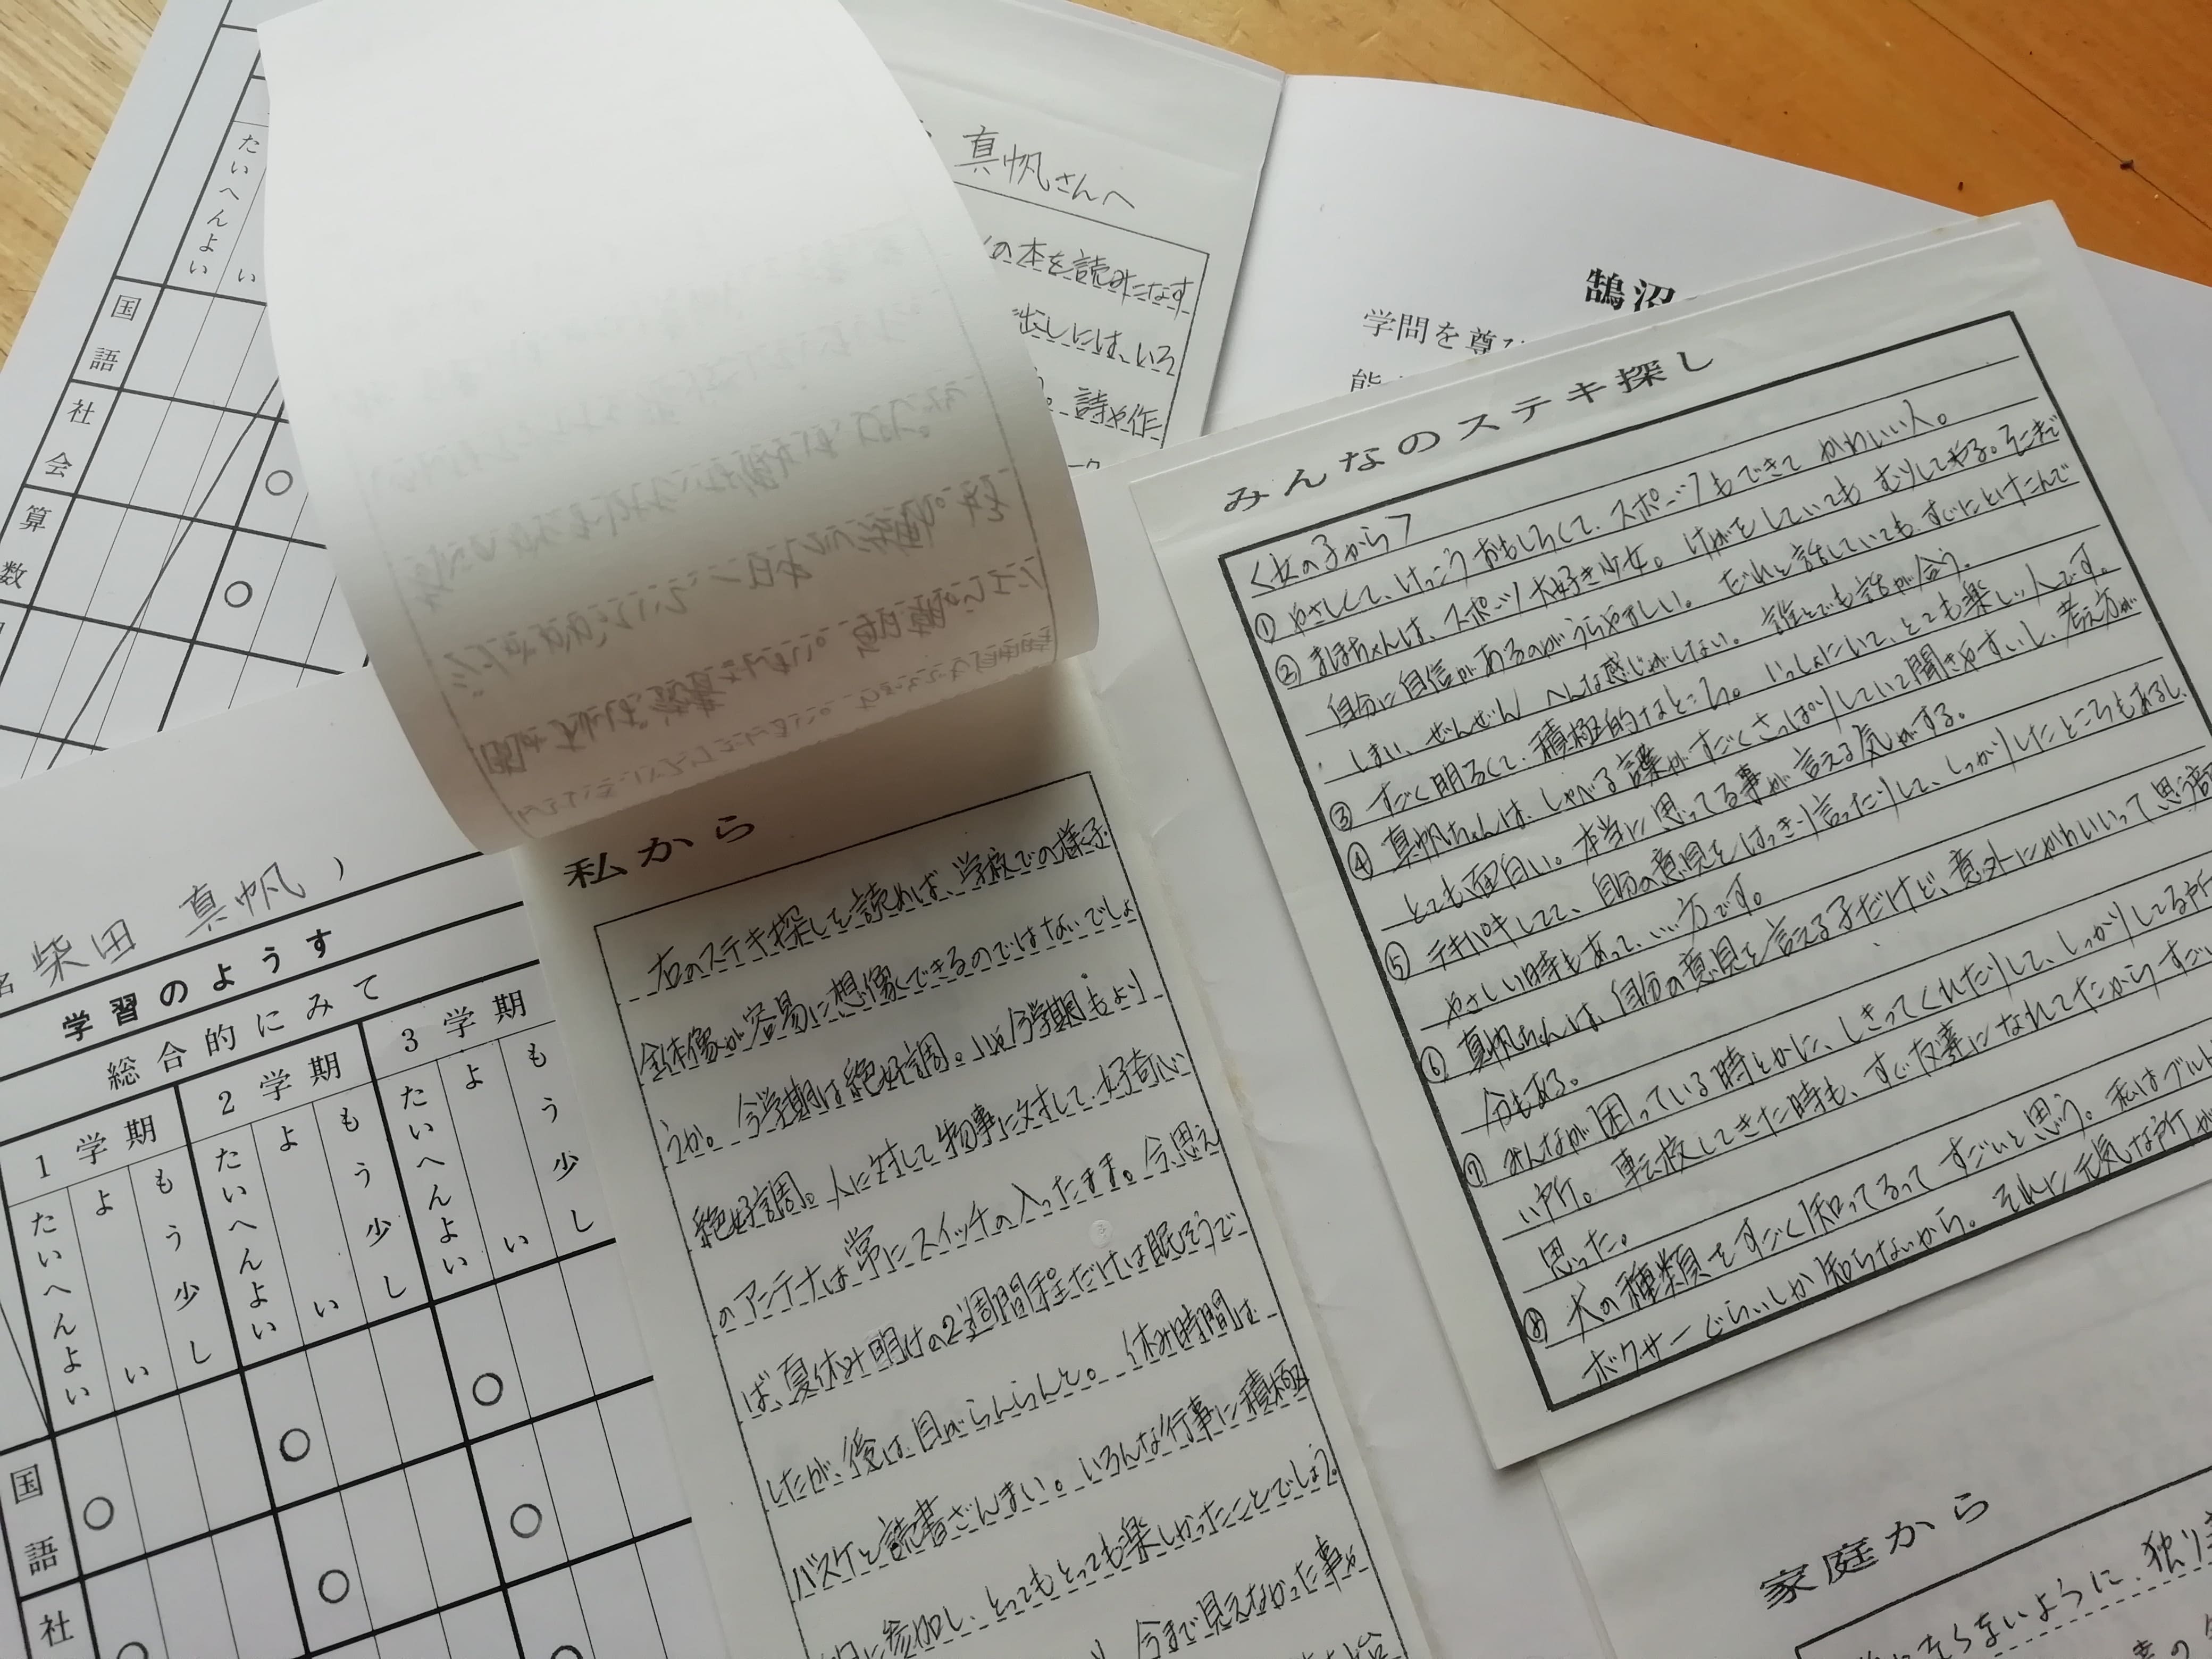 たいへんよい
い
国語
社会
算数
真帆さんへ
の本を読みこなす
出しには、いろ
詩や作
鵠沼
学問を尊
みんなのステキ探し
<女の子から>
① やさしくて、けっこうおもしろくて、スポーツもできてかわいい人。
② まほちゃんは、スポーツ大好き少女。けがをしていてもむりしてやる。そこまで
自分に自信があるのがうらやましい。だれと話していても、すぐにとけこんで
しまい、ぜんぜんへんな感じがしない。誰とでも話が合う。
③ すごく明るくて、積極的なところ。いっしょにいて、とても楽しい人です。
④ 真帆ちゃんは、しゃべる言葉がすごくさっぱりしていて聞きやすいし、考え方が
とても面白い。本当に思ってる事が言える気がする。
⑤ テキパキしてて、自分の意見をはっきり言ったりして、しっかりしたところもあるし、
やさしい時もあって、いい方です。
⑥ 真帆ちゃんは、自分の意見を言える子だけど、意外にかわいいって思う部
分もある。
⑦ みんなが困っている時とかに、しきってくれたりして、しっかりしてる所
い所。転校してきた時も、すぐ友達になれてたからすごい
思った。
⑧ 犬の種類をすごく知ってるってすごいと思う。私はブルド
ボクサーぐらいしか知らないから。それに元気な所が
私から
右のステキ探しを読めば、学校での様子
全体像が容易に想像できるのではないでしょ
うか。今学期は絶好調。いや今学期もより
絶好調。人に対して物事に対して、好奇心
のアンテナは常にスイッチの入ったまま。今思え
ば、夏休み明けの2週間程だけは眠そうで
したが、後は目がらんらんと。休み時間は
バスケと読書ざんまい。いろんな行事に積極
的に参加し、とってもとっても楽しかったことでしょう。
今まで見えなかった事や
名 柴田 真帆 )
学習のようす
総合的にみて
1学期 2学期 3学期
たいへんよい よい もう少し たいへんよい よい もう少し たいへんよい よい もう少し
国語
社
家庭から
ならないように、独り